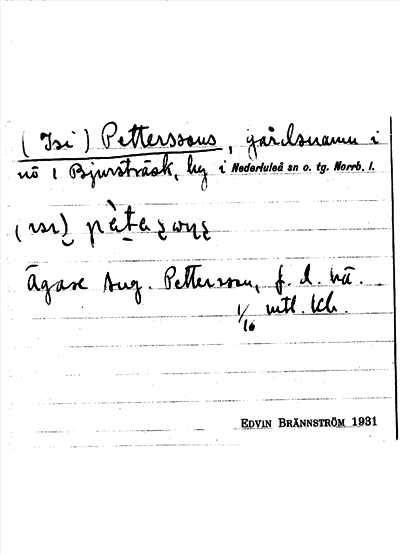 (Isi) Petterssons, gårdsnamn i
nö 1 Bjursträsk, by i Nederluleå sn o. tg. Norrb. l.
Ägare Aug. Pettersson, f. d. nä.
1/16 mtl. kr.
EDVIN BRÄNNSTRÖM 1931